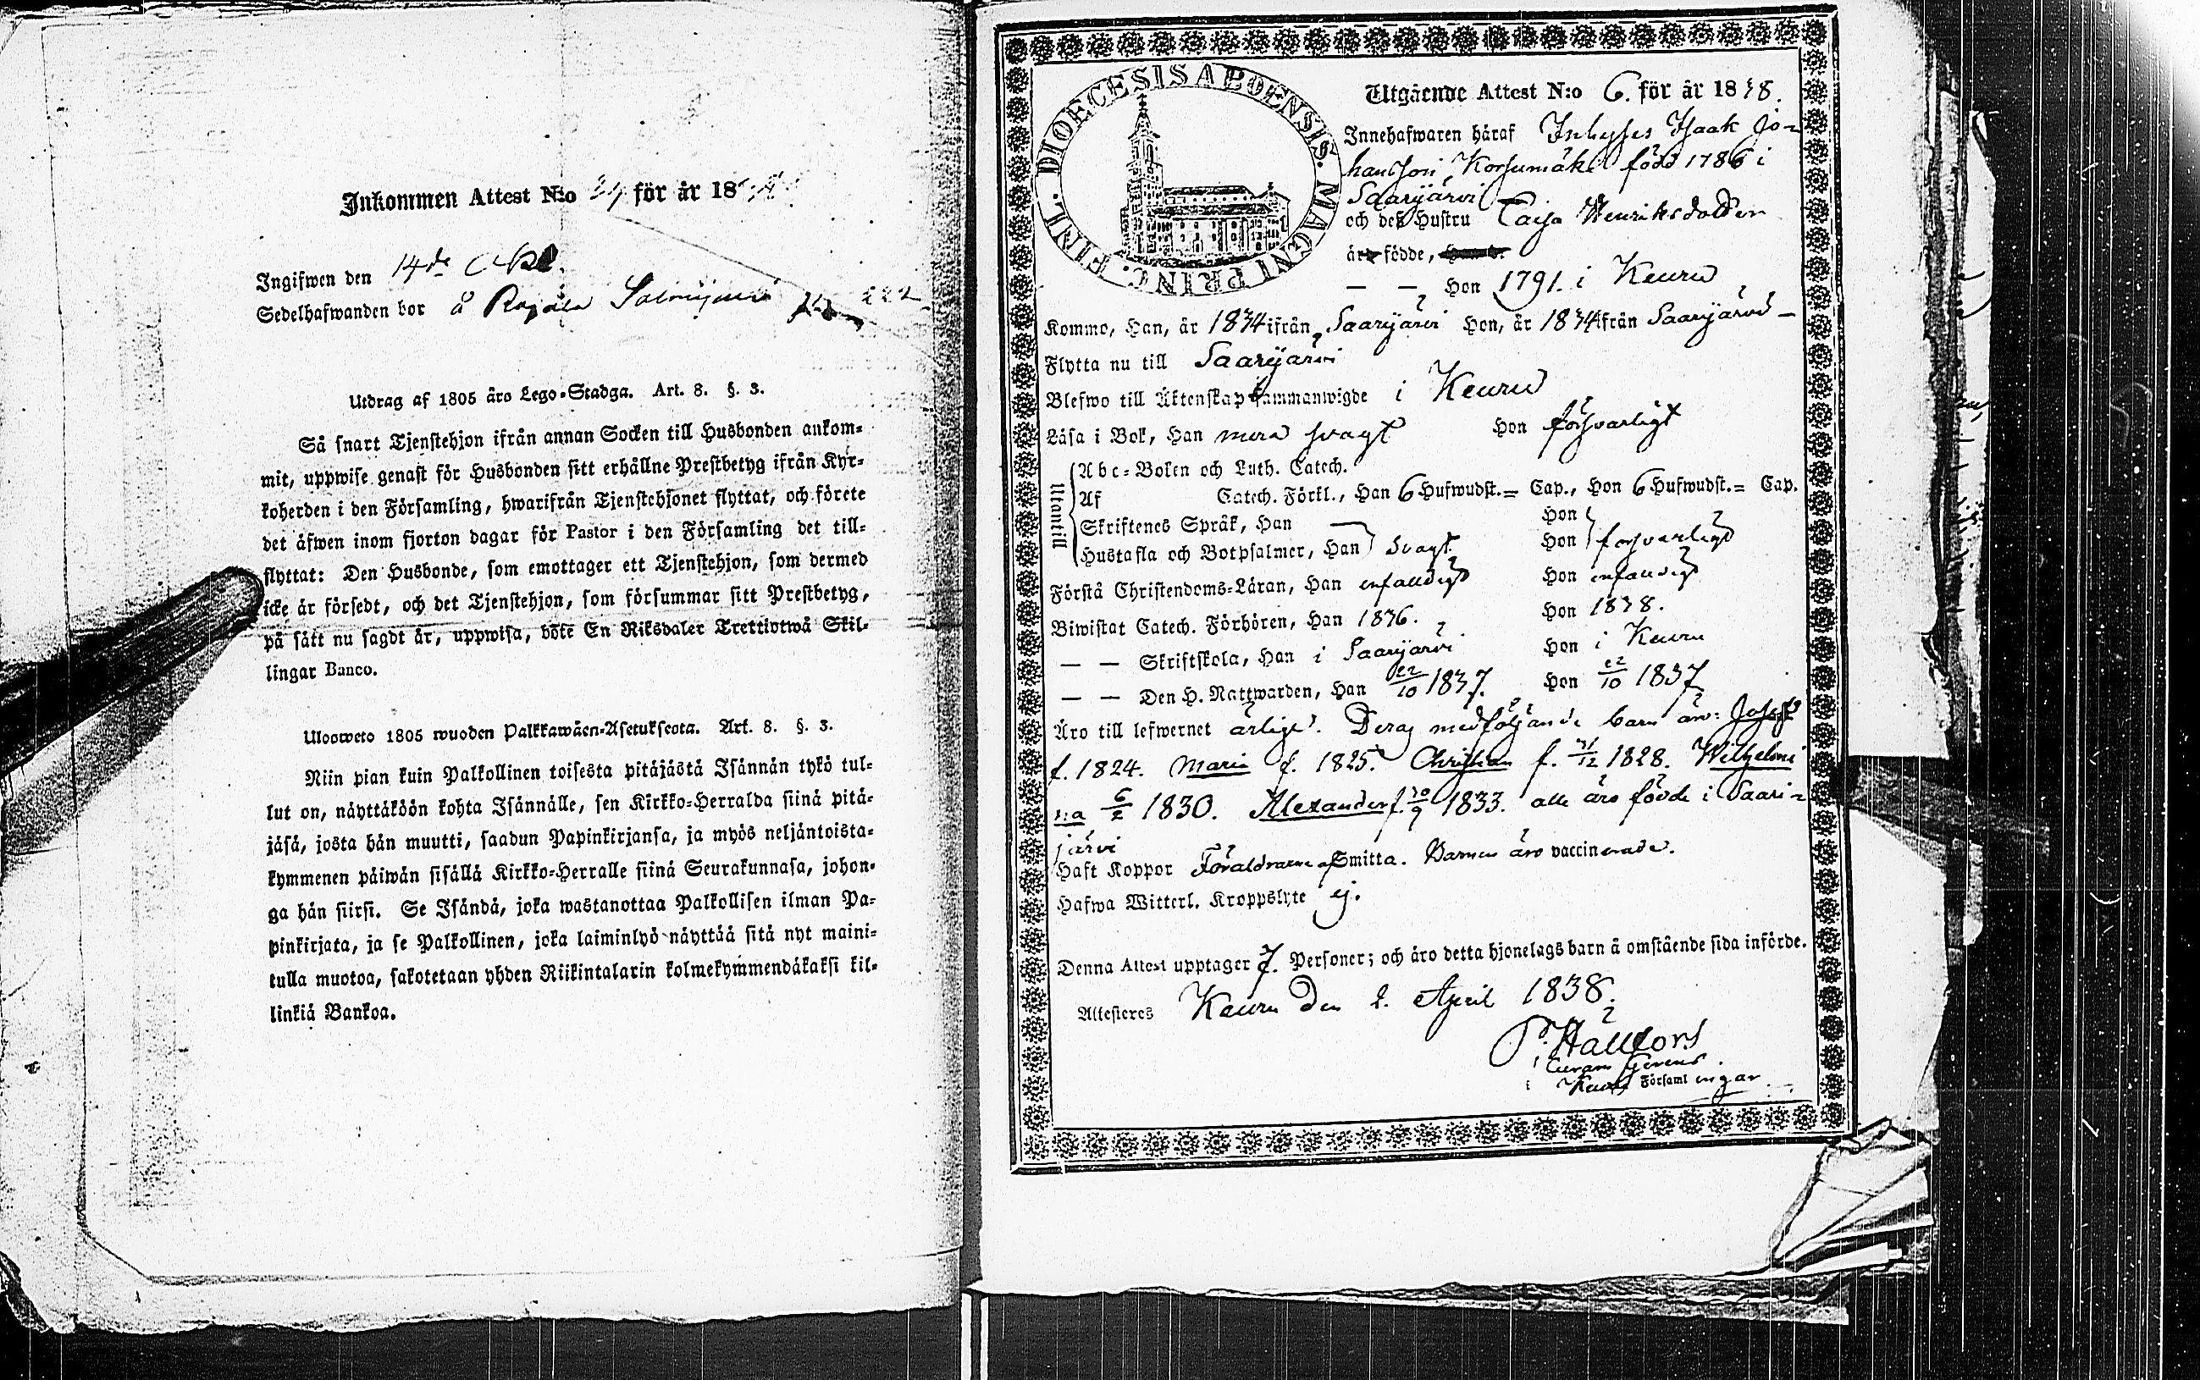 Inkommen Attest N:o 24 för år 18
Ingifwen den 14de
Sedelhafwanden bor å
Utdrag af 1805 års Lego-Stadga. Art. 8. §. 3.
Så snart Tjenstehjon ifrån annan Socken till Husbonden ankom-
mit, uppwise genast för Husbonden sitt erhållne Prestbetyg ifrån Kyr-
koherden i den Församling, hwarifrån Tjenstehjonet flyttat, och förete
det äfwen inom fjorton dagar för Pastor i den Församling det till-
flyttat: Den Husbonde, som emottager ett Tjenstehjon, som dermed
icke är försedt, och det Tjenstehjon, som försummar sitt Prestbetyg,
på sätt nu sagdt är, uppwisa, böte En Riksdaler Trettiotwå Skil-
lingar Banco.
Ulosweto 1805 wuoden Palkkawäen-Asetuksesta. Art. 8. §. 3.
Niin pian kuin Palkollinen toisesta pitäjästä Isännän tykö tul-
lut on, näyttäköön kohta Isännälle, sen Kirkko-Herralda siinä pitä-
jäsä, josta hän muutti, saadun Papinkirjansa, ja myös neljäntoista-
kymmenen päiwän sisällä Kirkko-Herralle siinä Seurakunnasa, johon-
ga hän siirsi. Se Isändä, joka wastanottaa Palkollisen ilman Pa-
pinkirjata, ja se Palkollinen, joka laiminlyö näyttää sitä nyt maini-
tulla muotoa, sakotetaan yhden Riikintalarin kolmekymmendäkaksi kil-
linkiä Bankoa.
DIOECESIS ABOENSIS. MAGNI PRINC. FINL.
Utgående Attest N:o 6. för år 1838.
Innehafwaren häraf Inhyses Isaak Jo-
hansson Korsumäki född 1786 i
Saarijärvi
och des Hustru Caisa Henriksdotter
är födde,
— — Hon 1791. i Keuru
Kommo, Han, år 1834 ifrån Saarijärvi Hon, år 1834 ifrån Saarijärvi —
Flytta nu till Saarijärvi
Blefwo till Äktenskap sammanwigde i Keuru
Läsa i Bok, Han mera svagt Hon försvarligt
Utantill
Abc-Boken och Luth. Catech.
Af Catech. Förkl., Han 6 Hufwudst. = Cap., Hon 6 Hufwudst. = Cap.
Skriftenes Språk, Han Hon
Hustafla och Botpsalmer, Han svagt Hon försvarligt
Förstå Christendoms-Läran, Han enfaldigt Hon enfaldigt
Biwistat Catech. Förhören, Han 1836. Hon 1838.
— — Skriftskola, Han i Saarijärvi Hon i Keuru
— — Den H. Nattwarden, Han 22/10 1837. Hon 22/10 1837
Äro till lefwernet ärlige. Deras medföljande barn äro: Josef
f. 1824. Maria f. 1825. Christian f. 31/12 1828. Wilhelmi
n:a 6/2 1830. Alexander f. 30/9 1833. alla äro födde i Saari-
järvi
Haft Koppor Föräldrarne af Smitta. Barnen äro vaccinerade.
Hafwa Witterl. Kroppslyte ej.
Denna Attest upptager 7. Personer; och äro detta hjonelags barn å omstående sida införde.
Attesteres Keuru den 2. April 1838.
P. Hällfors
Curam Gerens
i Keuru Församlingar